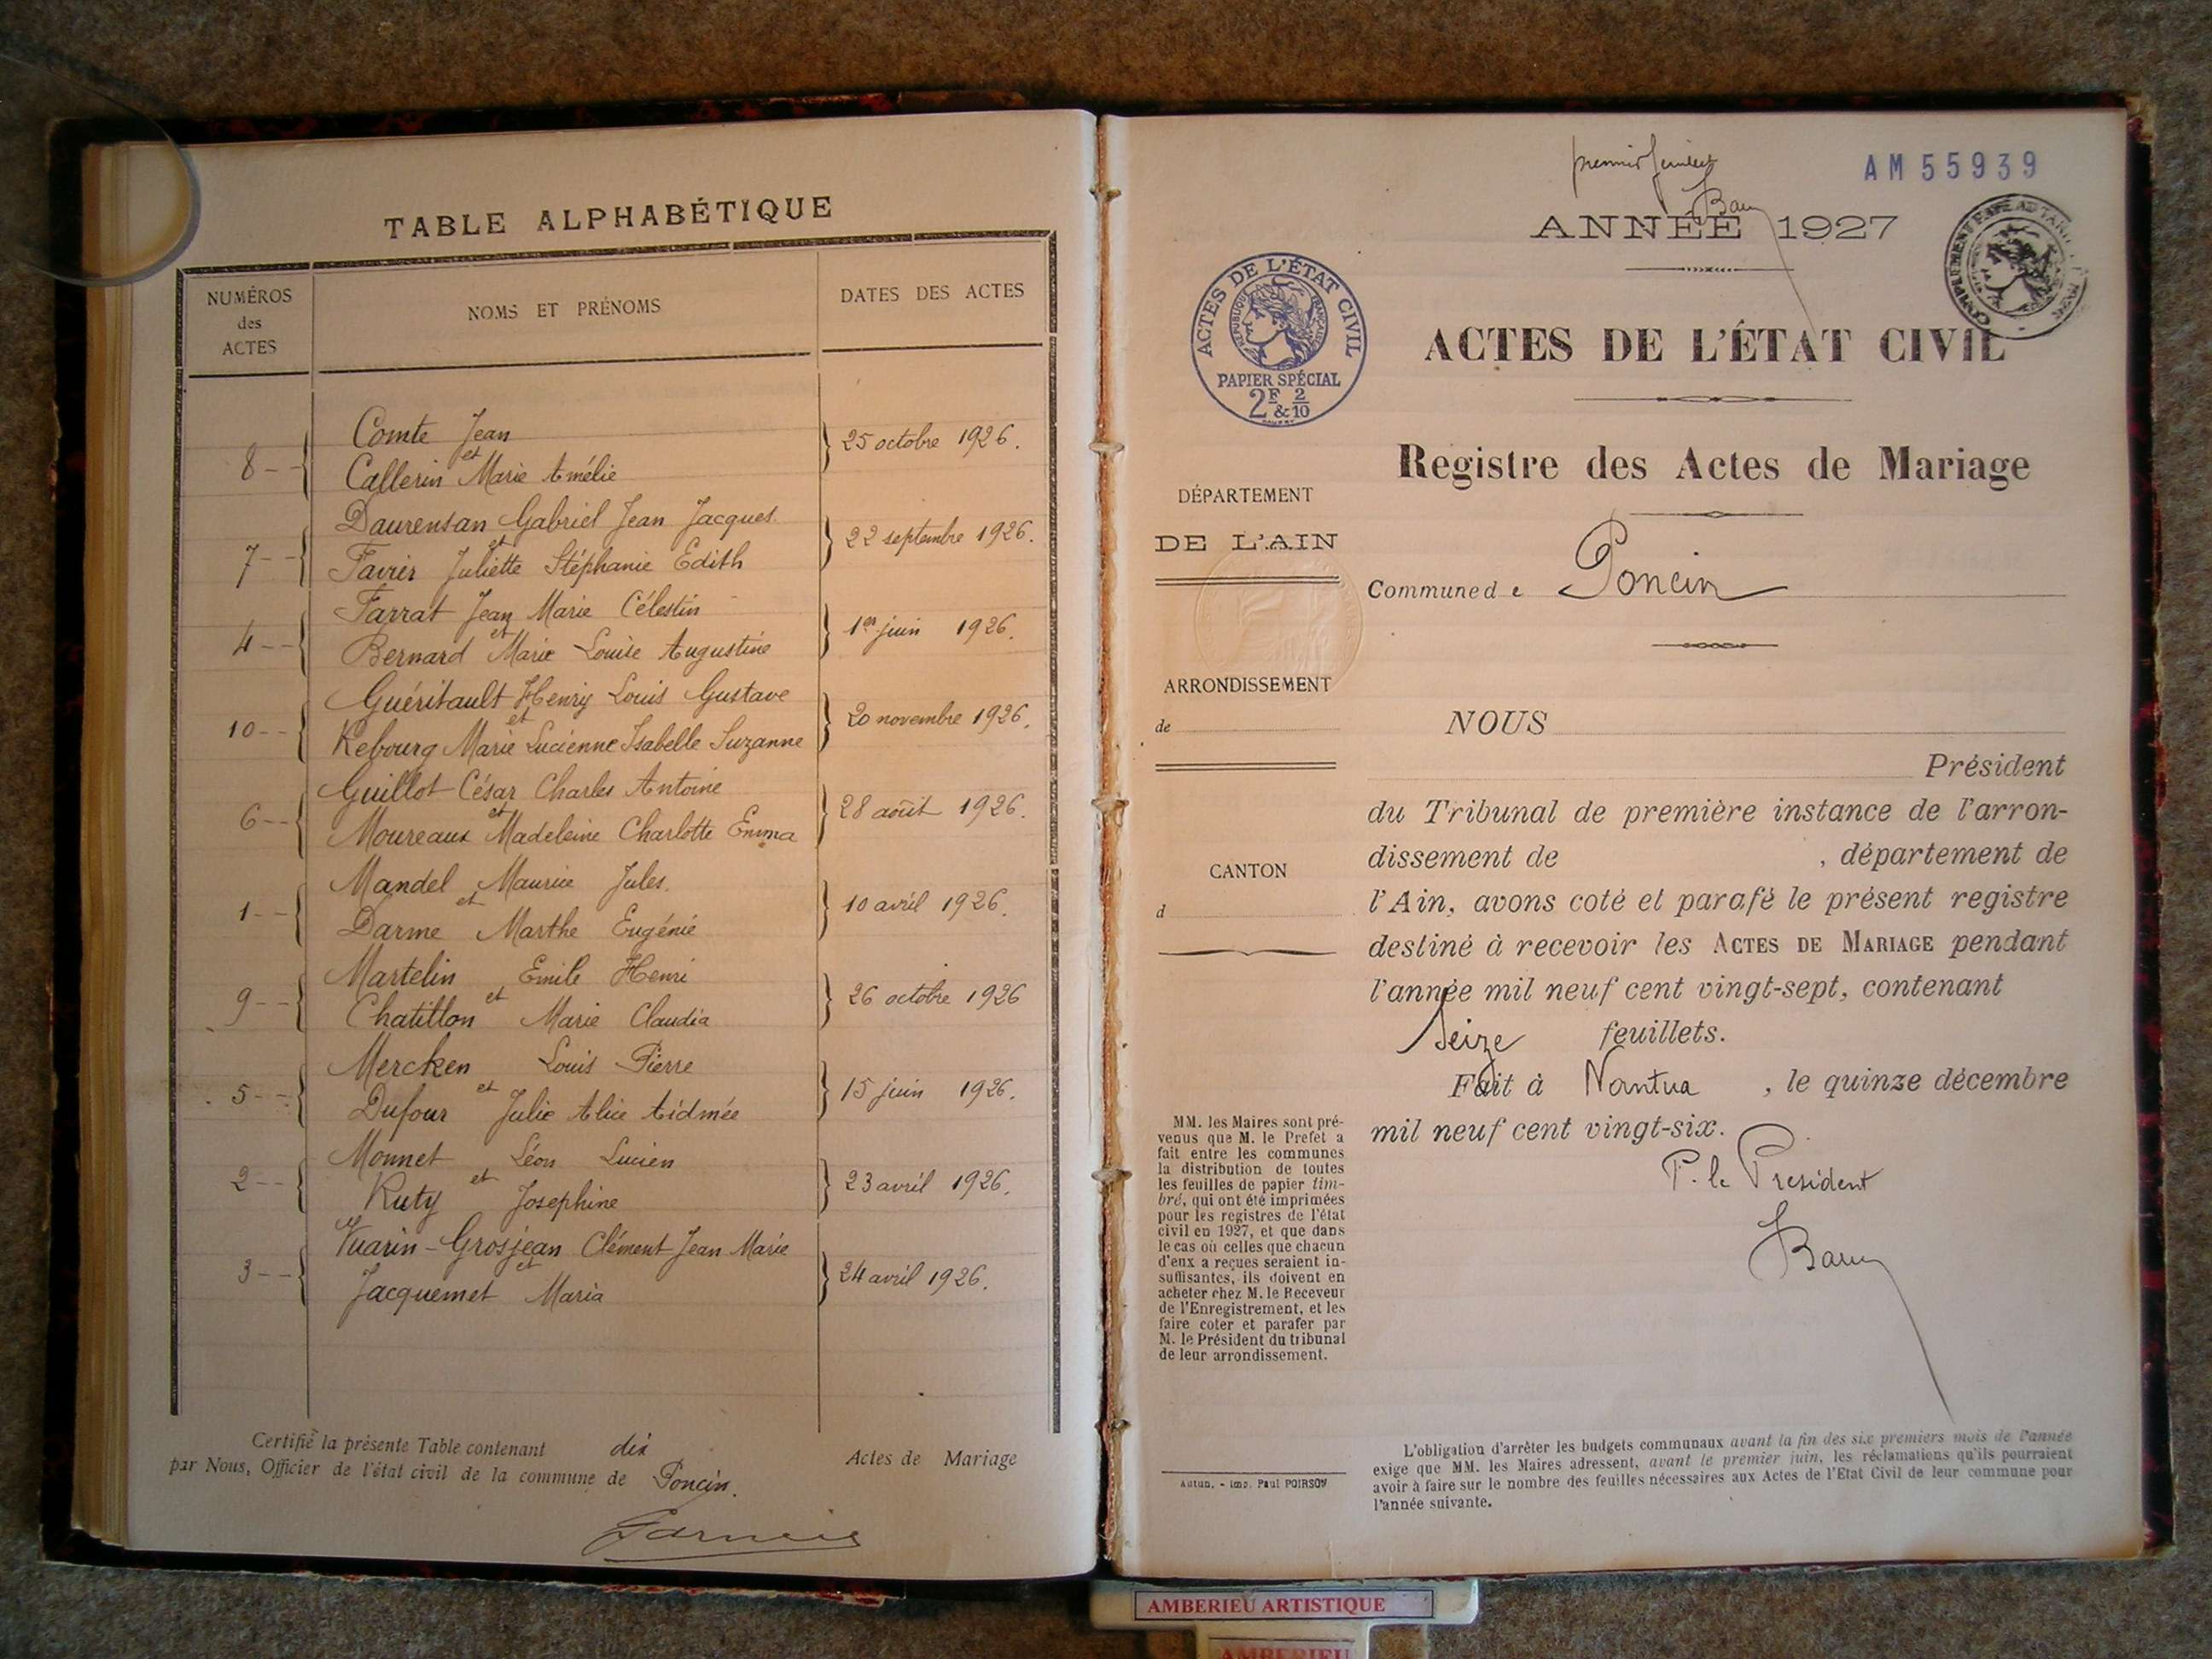 TABLE ALPHABÉTIQUE
NUMÉROS
des
ACTES
NOMS ET PRÉNOMS
DATES DES ACTES
8
Comte Jean
et
Callerin Marie Amélie
25 octobre 1926.
7
Daurensan Gabriel Jean Jacques
et
Favier Juliette Stéphanie Edith
22 septembre 1926.
4
Farrat Jean Marie Célestin
et
Bernard Marie Louise Augustine
1er juin 1926.
10
Guéritault Henry Louis Gustave
et
Rebourg Marie Lucienne Isabelle Suzanne
20 novembre 1926.
6
Guillot César Charles Antoine
et
Moureaux Madeleine Charlotte Emma
28 août 1926.
1
Mandel Maurice Jules
et
Darme Marthe Eugénie
10 avril 1926.
9
Martelin Emile Henri
et
Chatillon Marie Claudia
26 octobre 1926
5
Mercken Louis Pierre
et
Dufour Julie Alice Aidmée
15 juin 1926.
2
Monnet Léon Lucien
et
Ruty Josephine
23 avril 1926.
3
Vuarin-Grosjean Clément Jean Marie
et
Jacquemet Maria
24 avril 1926.
Certifié la présente Table contenant dix Actes de Mariage
par Nous, Officier de l'état civil de la commune de Poncin.
premier feuillet
AM 55939
ANNÉE 1927
ACTES DE L'ÉTAT CIVIL
RÉPUBLIQUE FRANÇAISE
PAPIER SPÉCIAL
2F & 2/10
ACTES DE L'ÉTAT CIVIL
Registre des Actes de Mariage
DÉPARTEMENT
DE L'AIN
Commune de Poncin
ARRONDISSEMENT
de
CANTON
d
NOUS
Président
du Tribunal de première instance de l'arron-
dissement de , département de
l'Ain, avons coté et parafé le présent registre
destiné à recevoir les ACTES DE MARIAGE pendant
l'année mil neuf cent vingt-sept, contenant
Seize feuillets.
Fait à Nantua , le quinze décembre
mil neuf cent vingt-six.
P. le President
MM. les Maires sont pré-
venus que M. le Prefet a
fait entre les communes
la distribution de toutes
les feuilles de papier tim-
bré, qui ont été imprimées
pour les registres de l'état
civil en 1927, et que dans
le cas où celles que chacun
d'eux a reçues seraient in-
suffisantes, ils doivent en
acheter chez M. le Receveur
de l'Enregistrement, et les
faire coter et parafer par
M. le Président du tribunal
de leur arrondissement.
Autun. - Imp. Paul POIRSON
L'obligation d'arrêter les budgets communaux avant la fin des six premiers mois de l'année
exige que MM. les Maires adressent, avant le premier juin, les réclamations qu'ils pourraient
avoir à faire sur le nombre des feuilles nécessaires aux Actes de l'Etat Civil de leur commune pour
l'année suivante.
AMBERIEU ARTISTIQUE
AMBERIEU